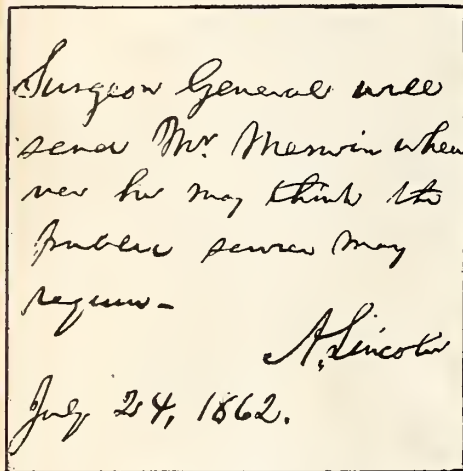 Surgeon General will
send Mr. Merwin when
ever he may think the
public service may
require—
A. Lincoln
July 24, 1862.